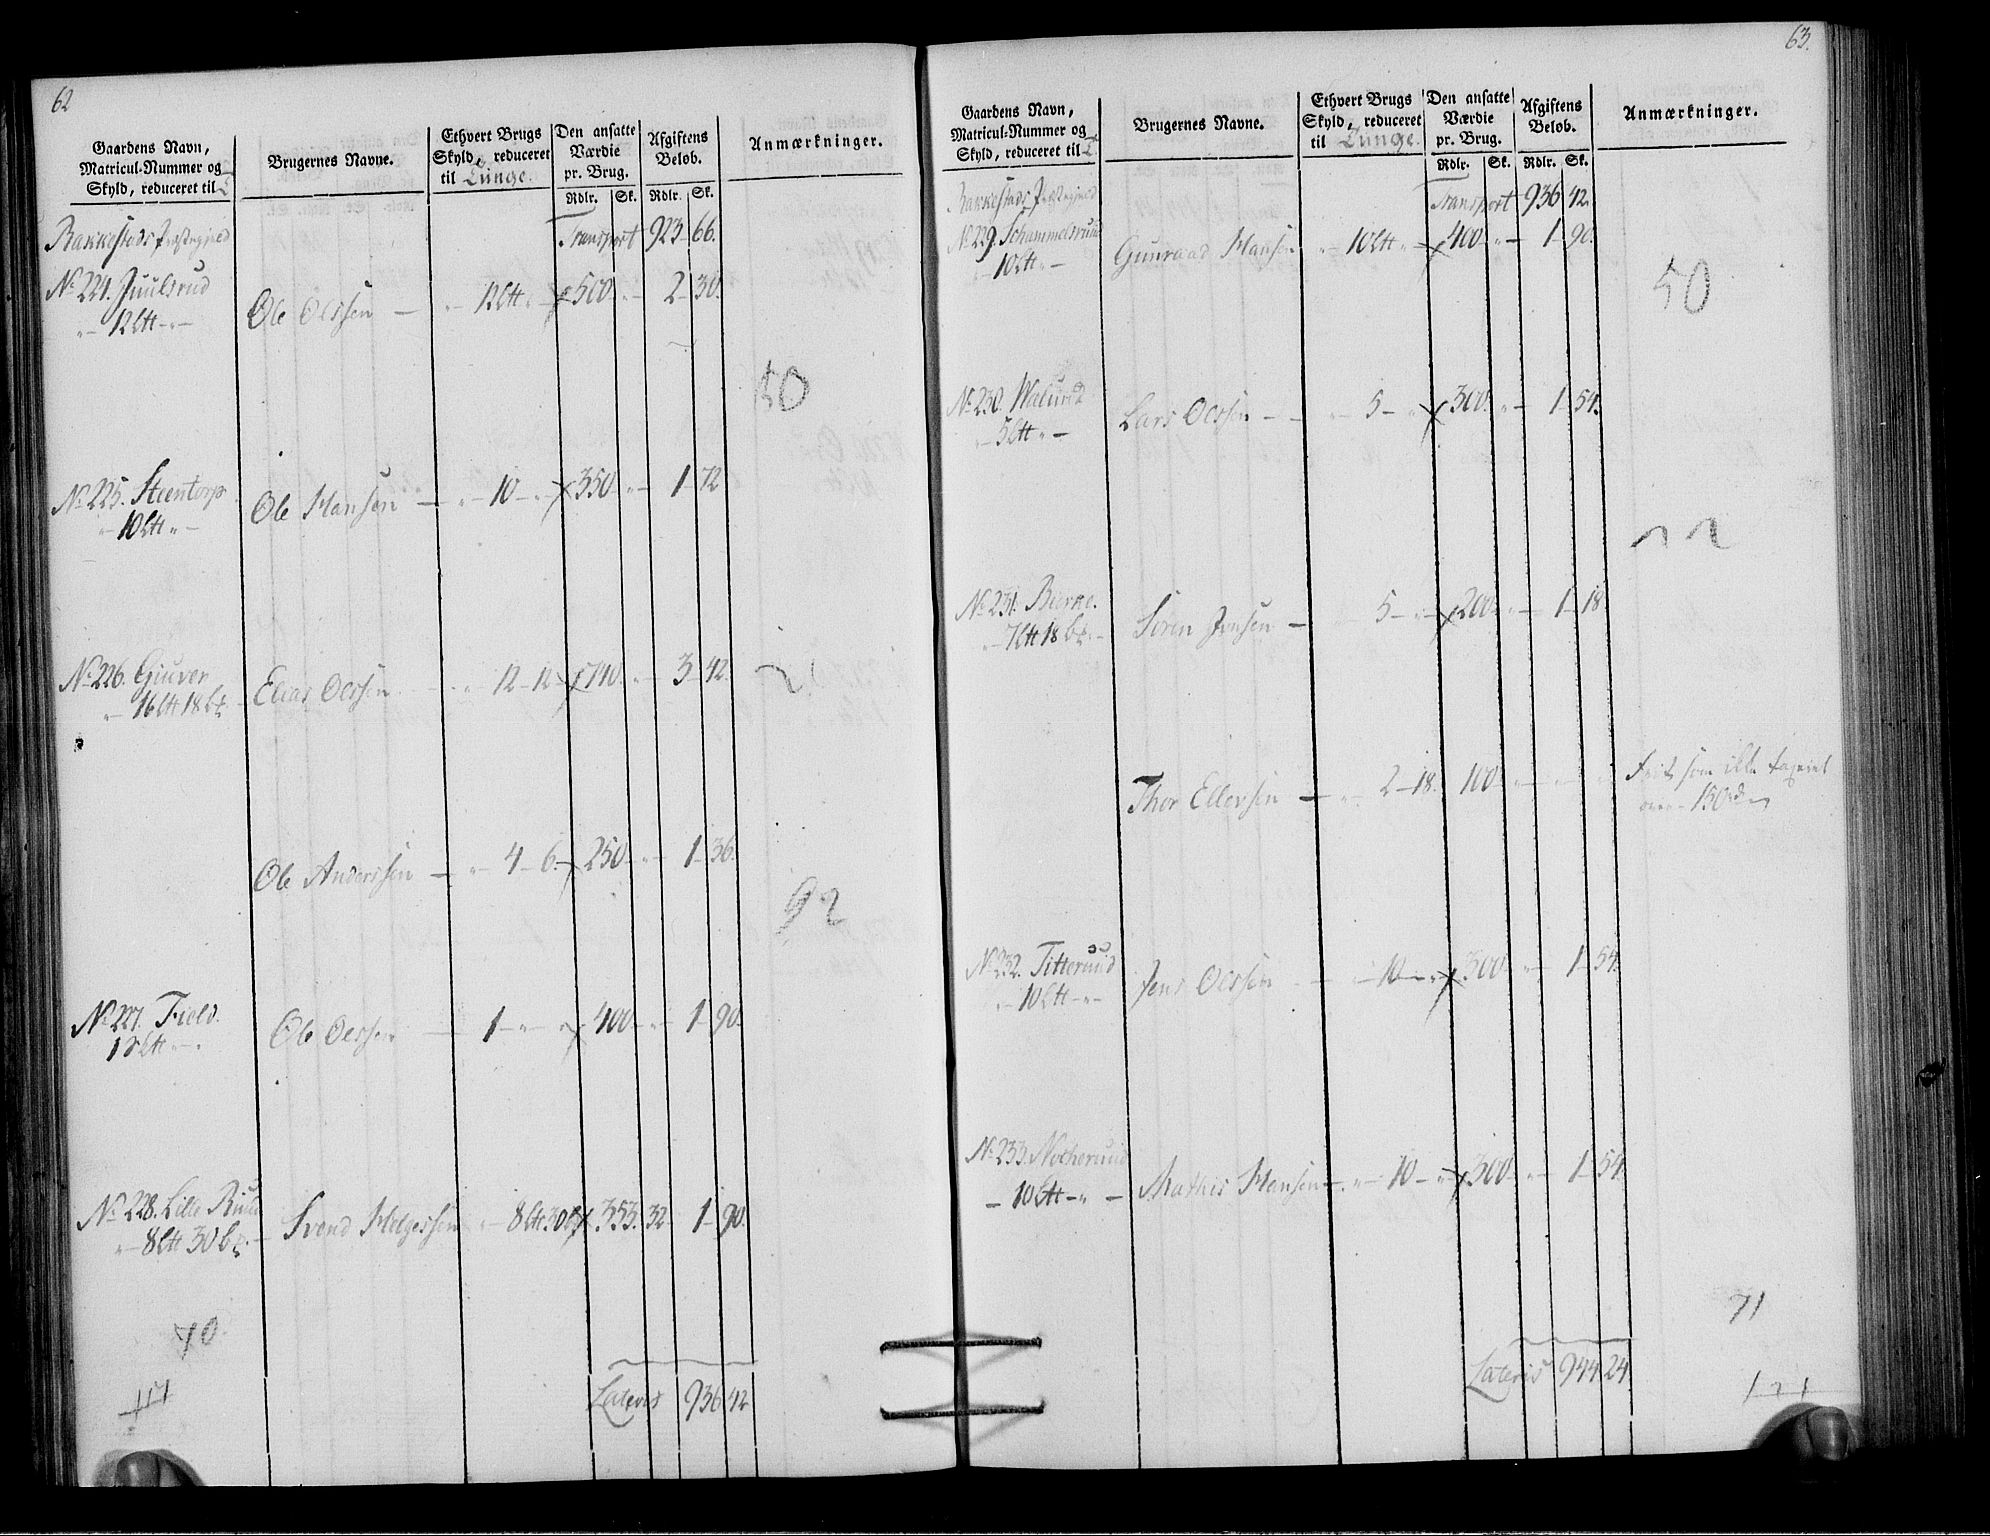 62
Gaardens Navn,
Matricul-Nummer og
Skyld, reduceret til
Brugernes Navne.
Ethvert Brugs
Skyld, reduceret
til Tunge.
Den ansatte
Værdie
pr. Brug.
Rdlr. Sk.
Afgiftens
Beløb.
Rdlr. Sk.
Anmærkninger.
Rakkestads Præstegield Transport 923 66.
No 224. Juulsrud
" 12 ltt " Ole Olssen 12 ltt " 500 " 2 30.
50
No 225. Steentorp
" 10 ltt " Ole Hansen " 10 " 350 " 1 72
No 226. Giuver
" 16 ltt 18 bz. Elias Olssen " 12 12 740 " 3 42.
Ole Anderssen " 4 6 250 " 1 36.
92
No 227. Field.
1 ltt " Ole Olssen 1 " " 400 " 1 90.
No 228. Lille Ruud
" 8 ltt 30 bz. Svend Helgessen " 8 ltt 30 bz 353. 32 1 90.
70
Lateris 936 42
63.
Gaardens Navn,
Matricul-Nummer og
Skyld, reduceret til
Brugernes Navne.
Ethvert Brugs
Skyld, reduceret
til Tunge.
Den ansatte
Værdie
pr. Brug.
Rdlr. Sk.
Afgiftens
Beløb.
Rdlr. Sk.
Anmærkninger.
Rakkestads Præstegield Transport 936 42.
No 229. Schammelsruud
" 10 ltt " Gunraad Hansen " 10 ltt " 400 " 1 90.
50
No 230. Walund
" 5 ltt " Lars Olssen " 5 " 300 " 1 54.
No 231. Bierke.
" 7 ltt 18 bz. Søren Jensen 5 " 200 " 1 18
Thor Ellevsen " 2 18. 100 " Frit som ikke taxeret
over 150 rd
No 232. Titteruud
" 10 ltt " Jens Olssen " 10 " 300 " 1 54.
No 233. Notheruud
" 10 ltt " Mathis Hansen " 10 " 300 " 1 54.
71
Lateris 944 24